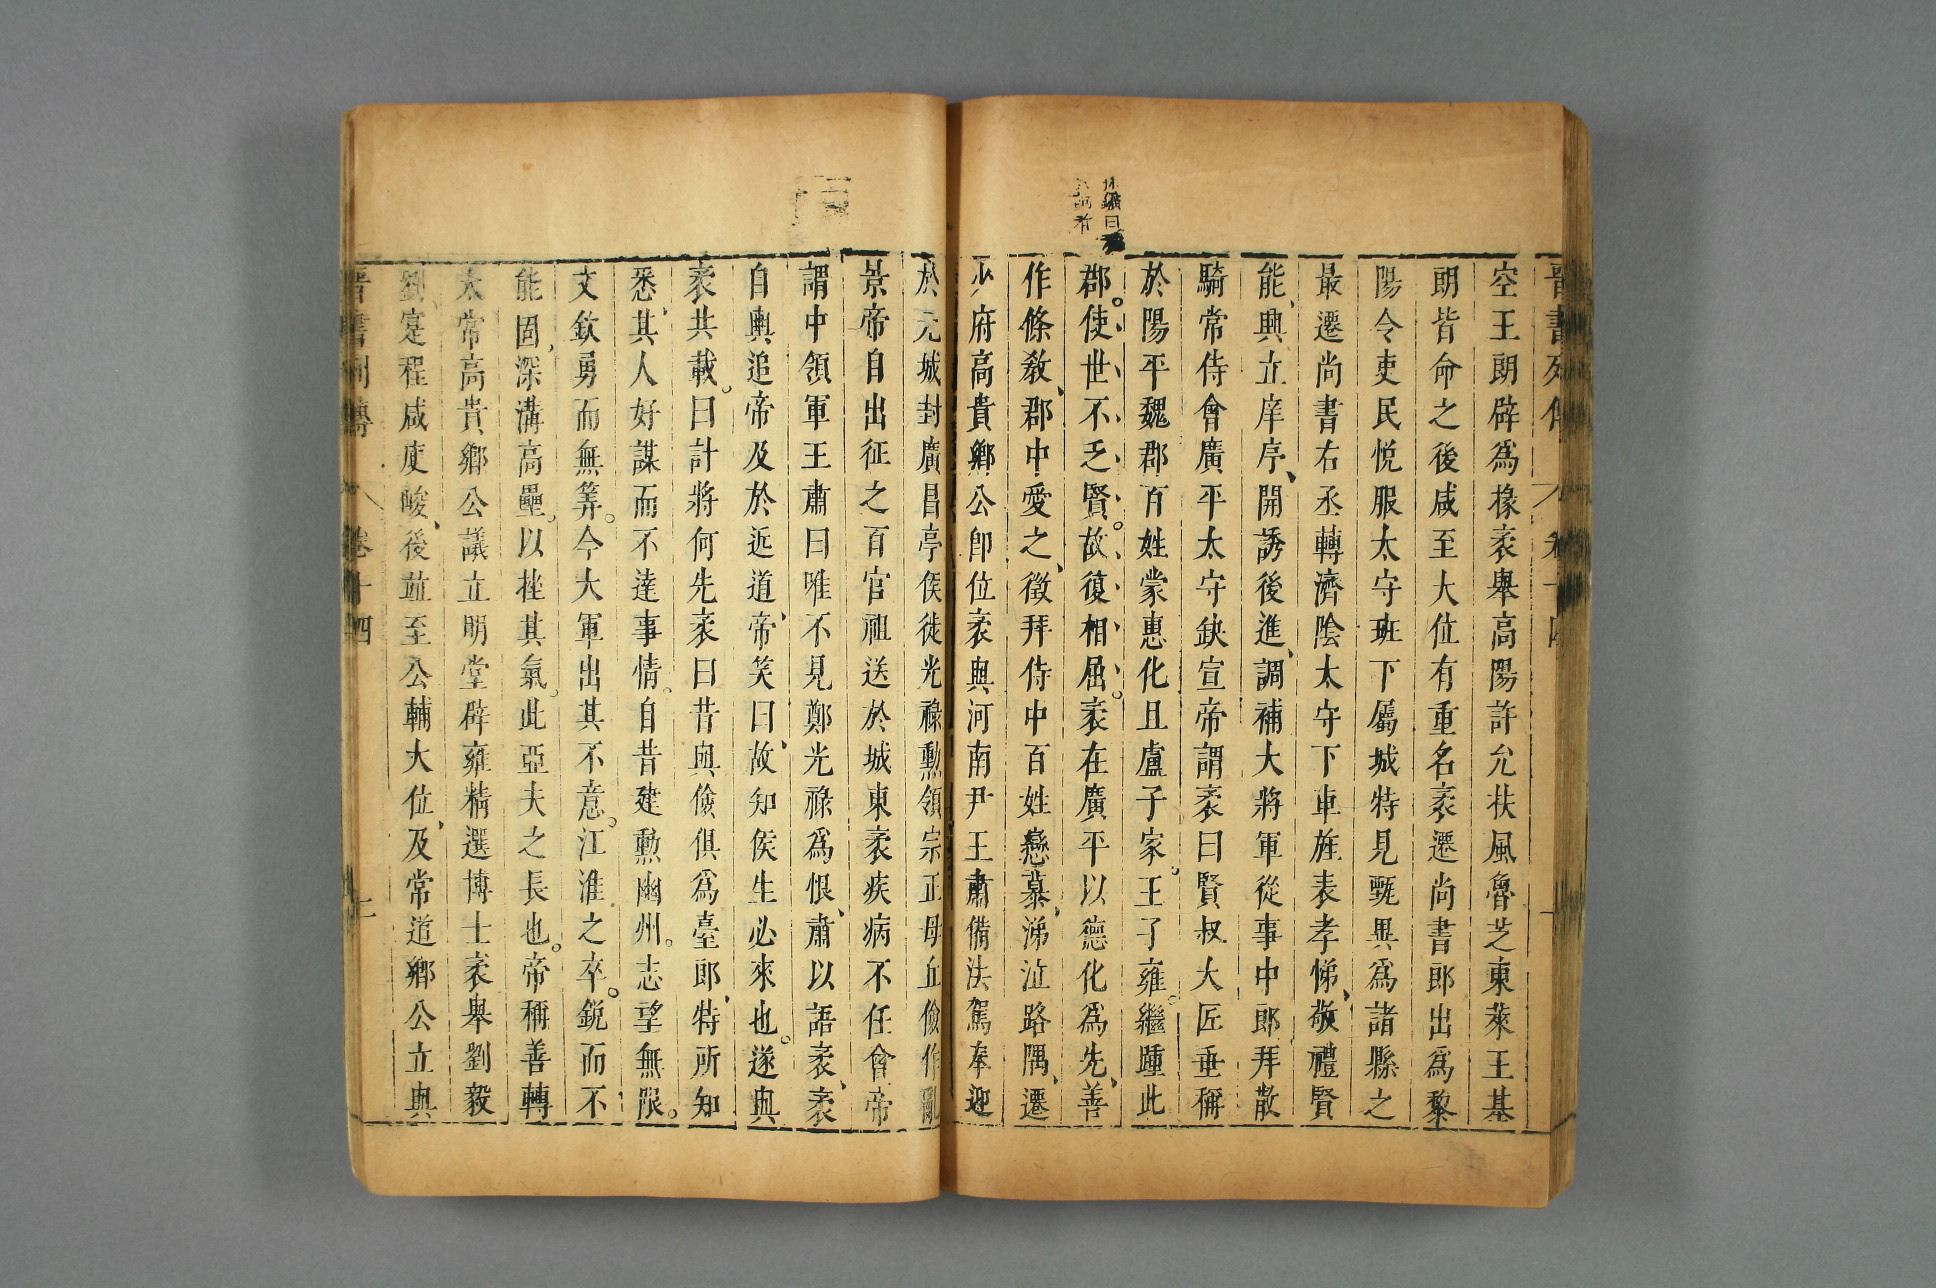 空王朗辟爲掾袤舉高陽許允扶風魯芝東萊王基
朗皆命之後咸至大位有重名袤遷尚書郎出爲黎
陽令吏民悅服太守班下屬城特見甄異爲諸縣之
最遷尚書右丞轉濟陰太守下車旌表孝悌、敬禮賢
能、興立庠序、開誘後進、調補大將軍從事中郎拜散
騎常侍會廣平太守缺宣帝謂袤曰賢叔大匠垂稱
於陽平魏郡百姓蒙惠化且盧子家。王子雍。繼踵此
郡。使世不乏賢。故復相屈。袤在廣平以德化爲先、善
作條教、郡中愛之、徵拜侍中百姓戀慕、涕泣路隅、遷
少府高貴鄉公卽位袤與河南尹王肅備法駕奉迎
於元城封廣昌亭侯徙光祿勳領宗正毋丘儉作亂
景帝自出征之百官祖送於城東袤疾病不任會帝
謂中領軍王肅曰唯不見鄭光祿爲恨、肅以語袤、袤
自輿追帝及於近道、帝笑曰、故知侯生必來也。遂與
袤共載。曰計將何先袤曰昔與儉俱爲臺郎、特所知
悉、其人好謀而不達事情。自昔建勳幽州。志望無限。
文欽勇而無筭。今大軍出其不意。江淮之卒。銳而不
能固、深溝高壘。以挫其氣。此亞夫之長也。帝稱善轉
太常高貴鄉公議立明堂辟雍精選博士袤舉劉毅
劉寔程咸庾峻、後竝至公輔大位、及常道鄉公立與
晉書列傳 卷十四